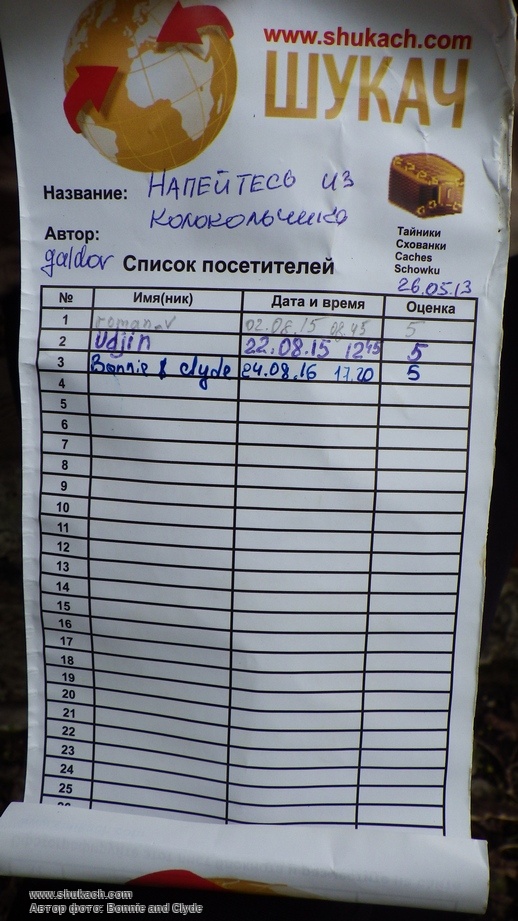 www.shukach.com
ШУКАЧ
Название: НАПЕЙТЕСЬ ИЗ
КОЛОКОЛЬЧИКА
Тайники
Схованки
Caches
Schowku
Автор:
galdor Список посетителей
26.05.13
№ Имя(ник) Дата и время Оценка
1 roman-v 02.08.15 08:45 5
2 Udjin 22.08.15 12 45 5
3 Bonnie & Clyde 24.08.16 17.20 5
4
5
6
7
8
9
10
11
12
13
14
15
16
17
18
19
20
21
22
23
24
25
www.shukach.com
Автор фото: Bonnie and Clyde